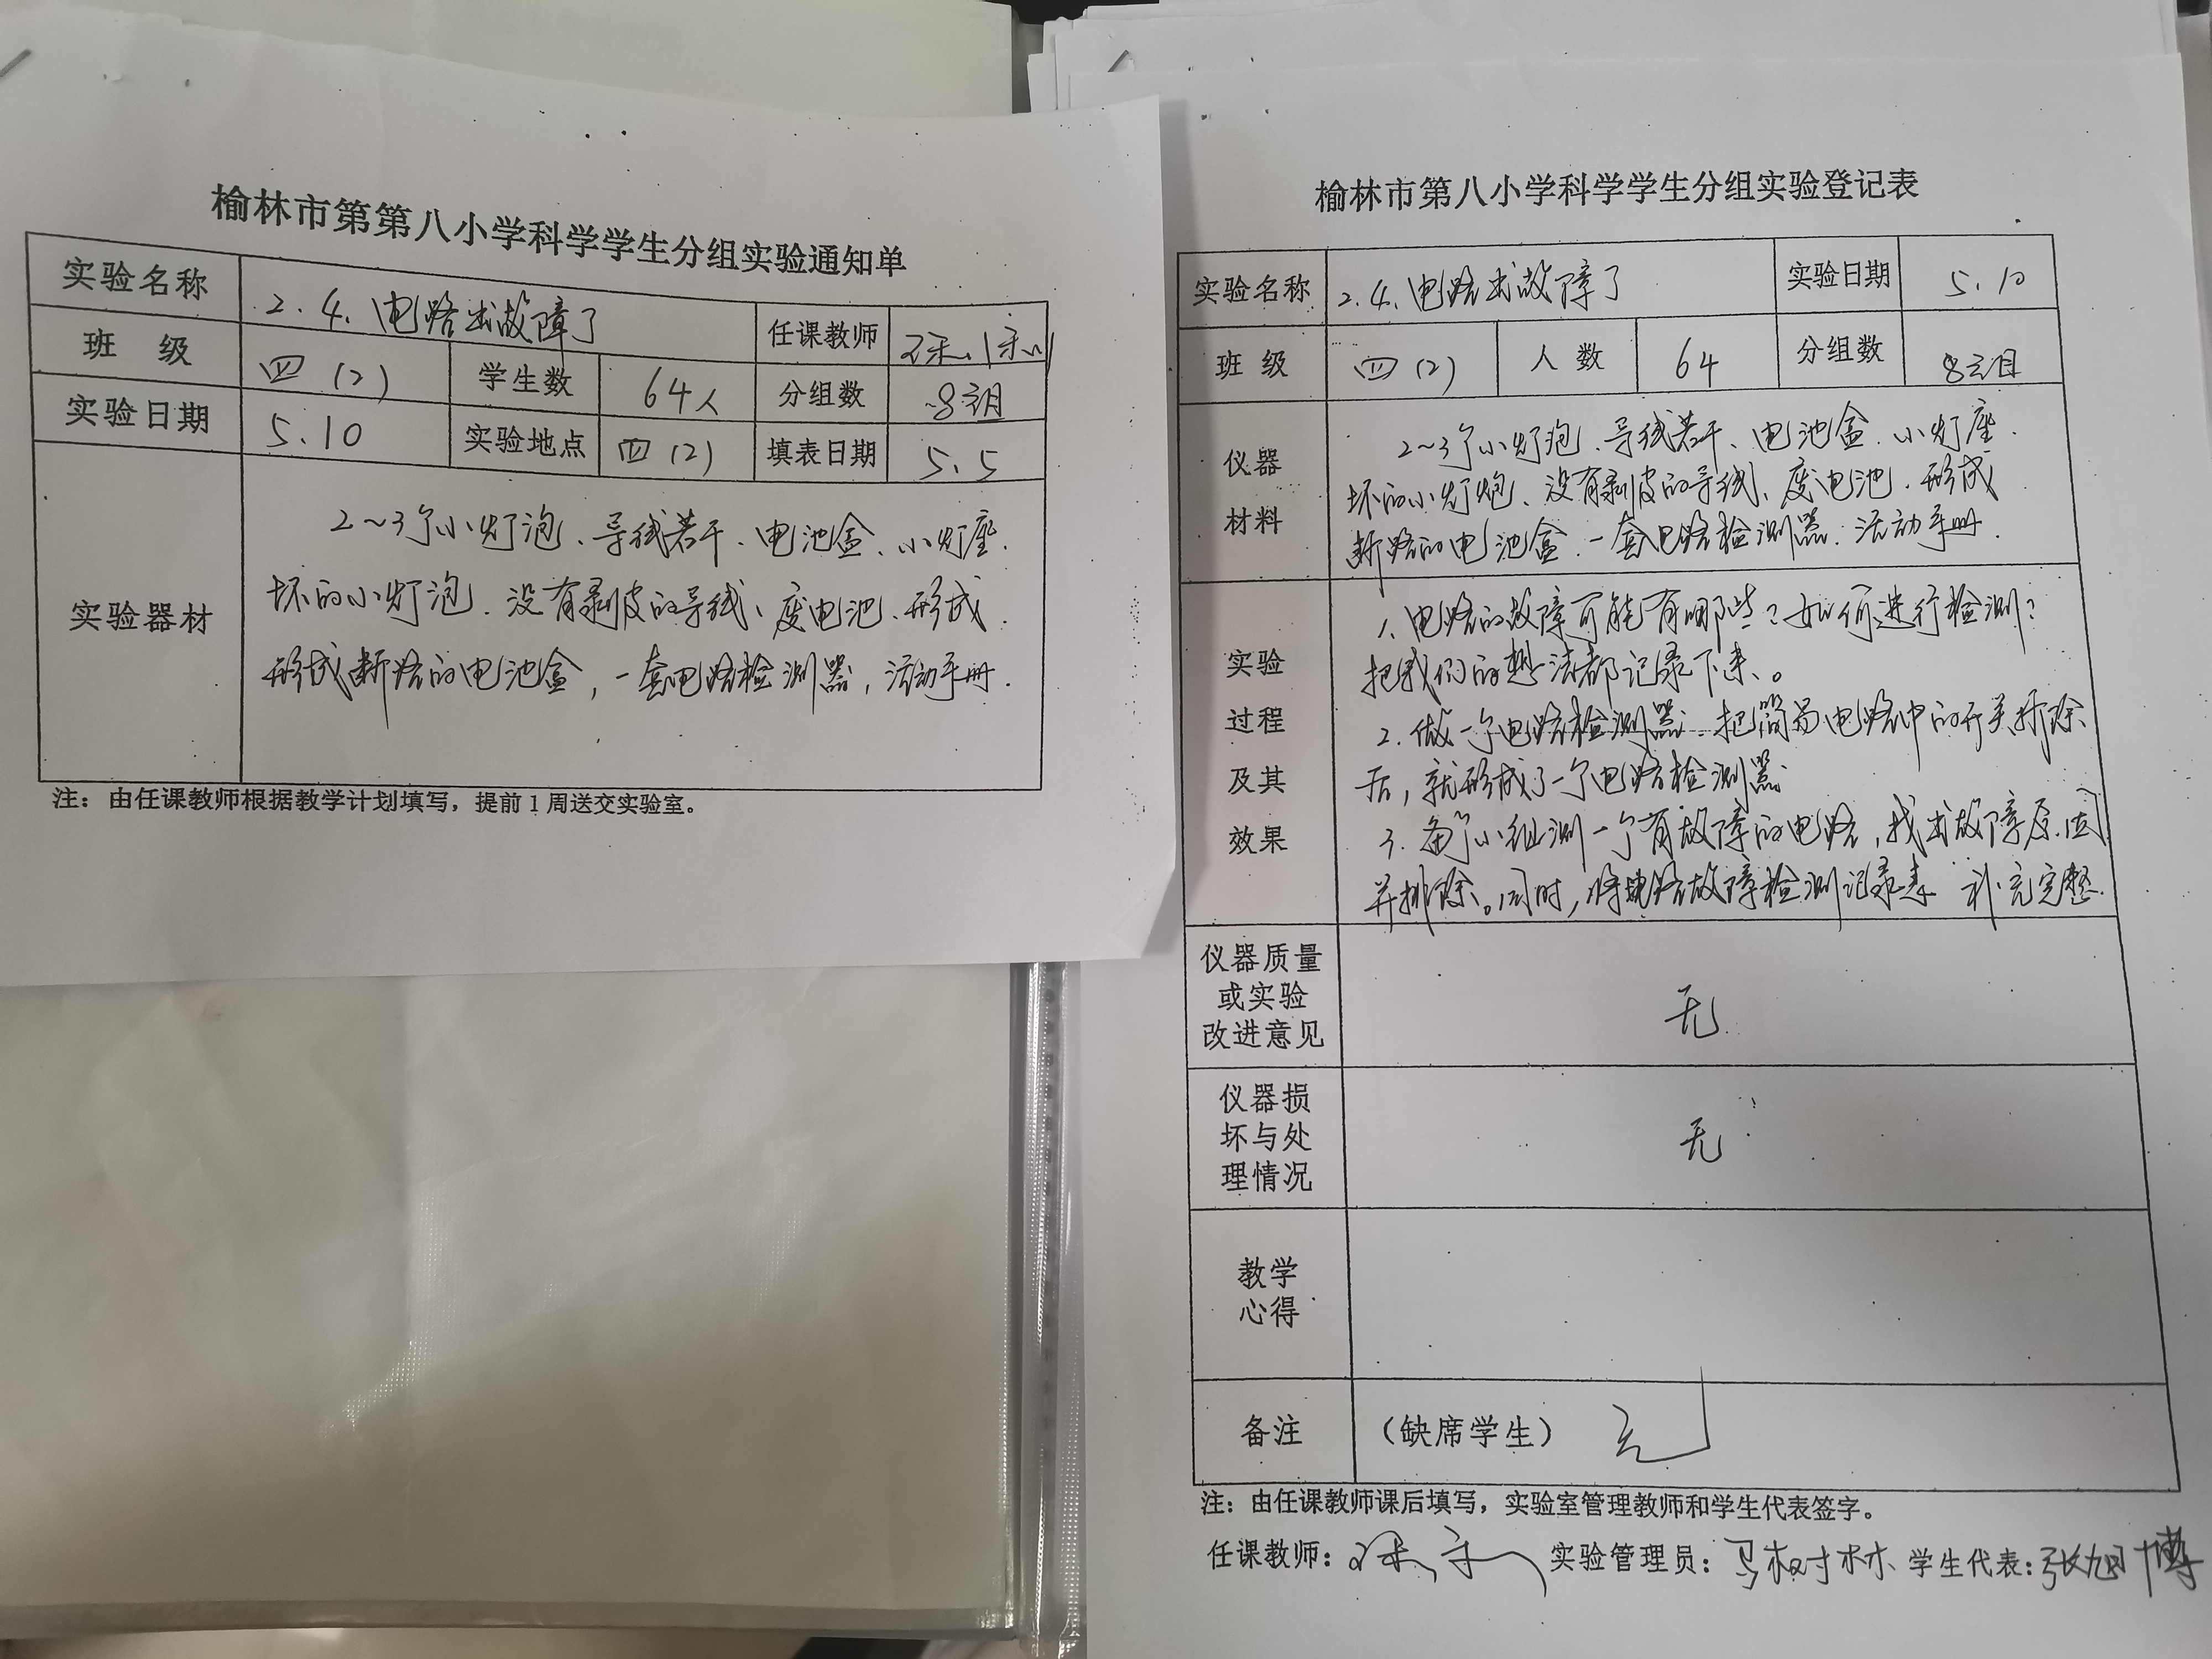 榆林市第第八小学科学学生分组实验通知单
实验名称 2.4、电路出故障了 任课教师
班 级 四(2) 学生数 64人 分组数 8组
实验日期 5.10 实验地点 四(2) 填表日期 5.5
实验器材
2~3个小灯泡、导线若干、电池盒、小灯座、
坏的小灯泡、没有剥皮的导线、废电池、形成
形成断路的电池盒，一套电路检测器，活动手册.
注：由任课教师根据教学计划填写，提前1周送交实验室。
榆林市第八小学科学学生分组实验登记表
实验名称 2.4.电路出故障了 实验日期 5.10
班 级 四(2) 人 数 64 分组数 8组
仪器
材料
2~3个小灯泡、导线若干、电池盒、小灯座.
坏的小灯炮、没有剥皮的导线、废电池、形成
断路的电池盒、一套电路检测器、活动手册.
实验
过程
及其
效果
1、电路的故障可能有哪些？如何进行检测？
把我们的想法都记录下来、。
2. 做一个电路检测器：把简易电路中的开关拆除
后，就形成了一个电路检测器
3. 每个小组测一个有故障的电路，找出故障原因
并排除。同时，将电路故障检测记录表 补充完整.
仪器质量
或实验
改进意见
无
仪器损
坏与处
理情况
无
教学
心得
备注 （缺席学生） 无
注：由任课教师课后填写，实验室管理教师和学生代表签字。
任课教师： 实验管理员：马树林 学生代表：张旭博